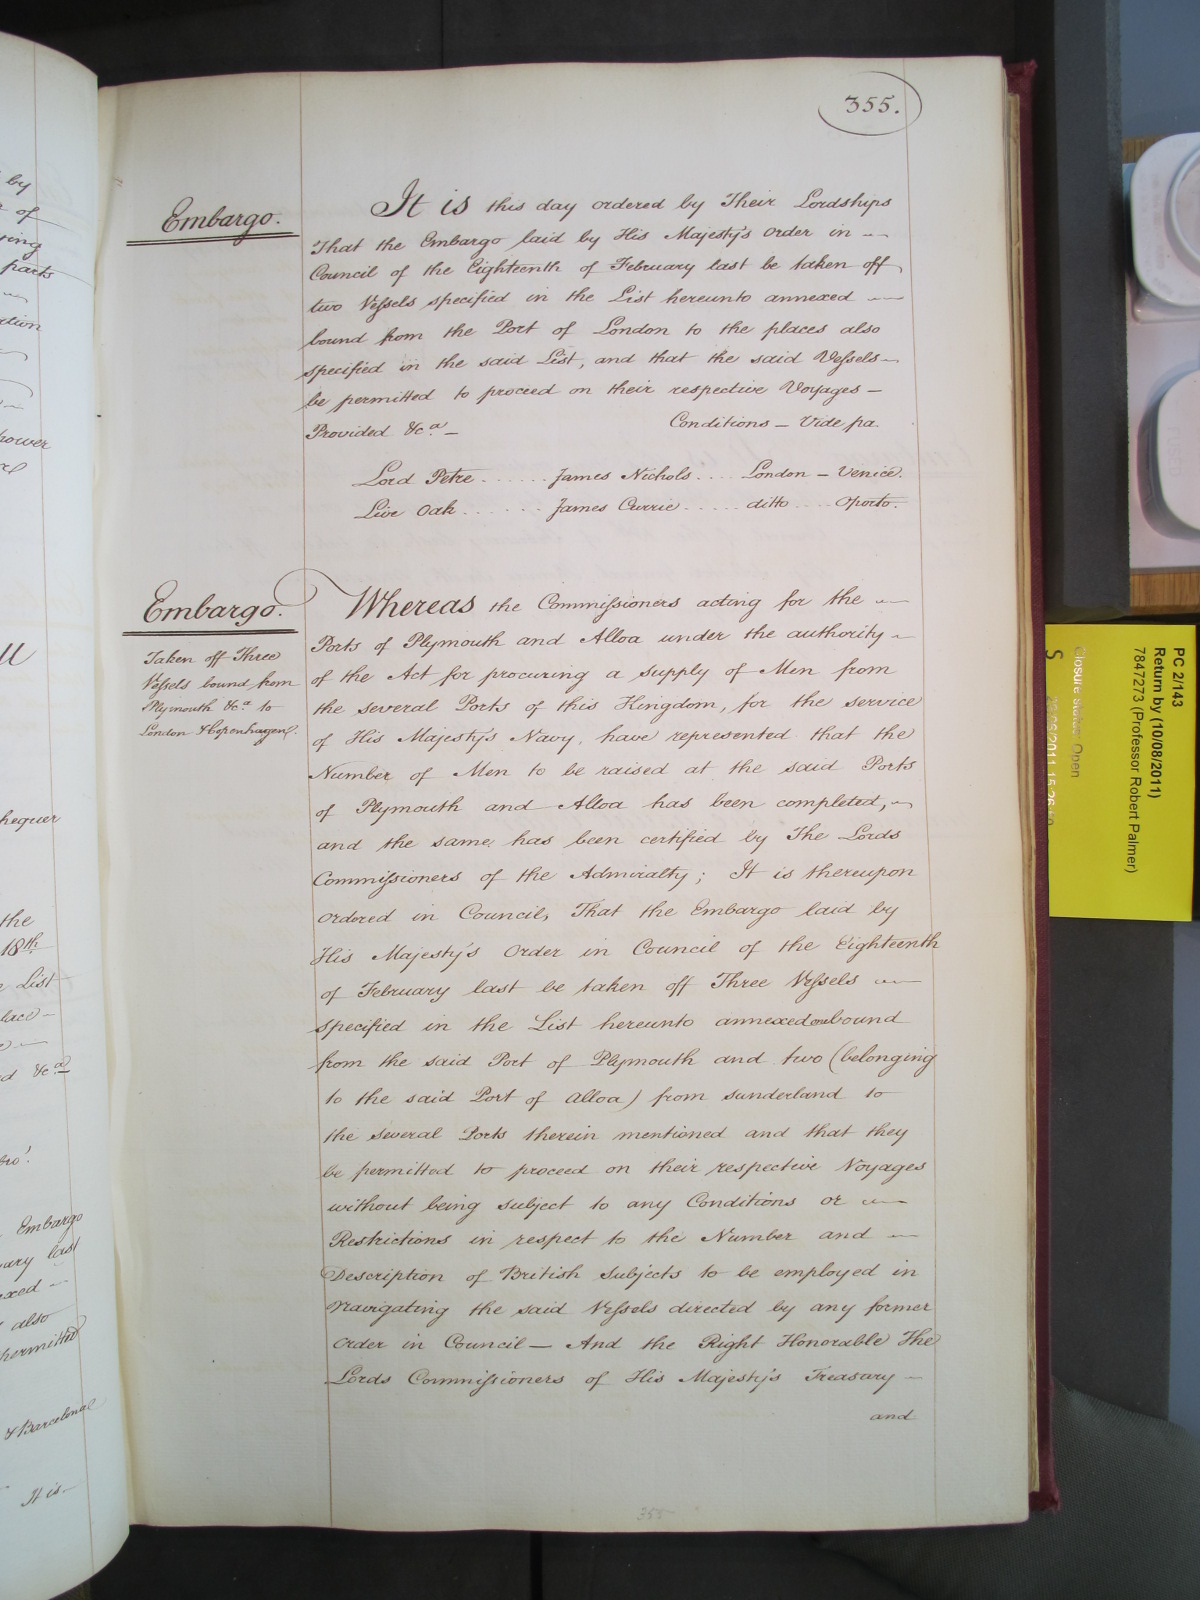 355.
Embargo.
It is this day ordered by Their Lordships
That the Embargo laid by His Majesty's Order in
Council of the Eighteenth of February last be taken off
two Vessels specified in the List hereunto annexed
bound from the Port of London to the places also
specified in the said List, and that the said Vessels
be permitted to proceed on their respective Voyages –
Provided &c.a – Conditions – Vide pa.
Lord Petre ...... James Nichols .... London – Venice.
Live Oak ....... James Currie ..... ditto .... Oporto.
Embargo.
Taken off Three
Vessels bound from
Plymouth &c.a to
London & Copenhagen.
Whereas the Commissioners acting for the
Ports of Plymouth and Alloa under the authority
of the Act for procuring a supply of Men from
the several Ports of this Kingdom, for the service
of His Majesty's Navy, have represented that the
Number of Men to be raised at the said Ports
of Plymouth and Alloa has been completed,
and the same has been certified by The Lords
Commissioners of the Admiralty; It is thereupon
ordered in Council, That the Embargo laid by
His Majesty's Order in Council of the Eighteenth
of February last be taken off Three Vessels
specified in the List hereunto annexed one bound
from the said Port of Plymouth and two (belonging
to the said Port of Alloa) from Sunderland to
the several Ports therein mentioned and that they
be permitted to proceed on their respective Voyages
without being subject to any Conditions or
Restrictions in respect to the Number and
Description of British Subjects to be employed in
Navigating the said Vessels directed by any former
Order in Council – And the Right Honorable The
Lords Commissioners of His Majesty's Treasury
and
355
by
of
parts
power
the
18th
List
&c.a
Embargo
last
also
permitted
& Barcelona
It is
PC 2/143
Return by (10/08/2011)
7847273 (Professor Robert Palmer)
Closure status: Open
S